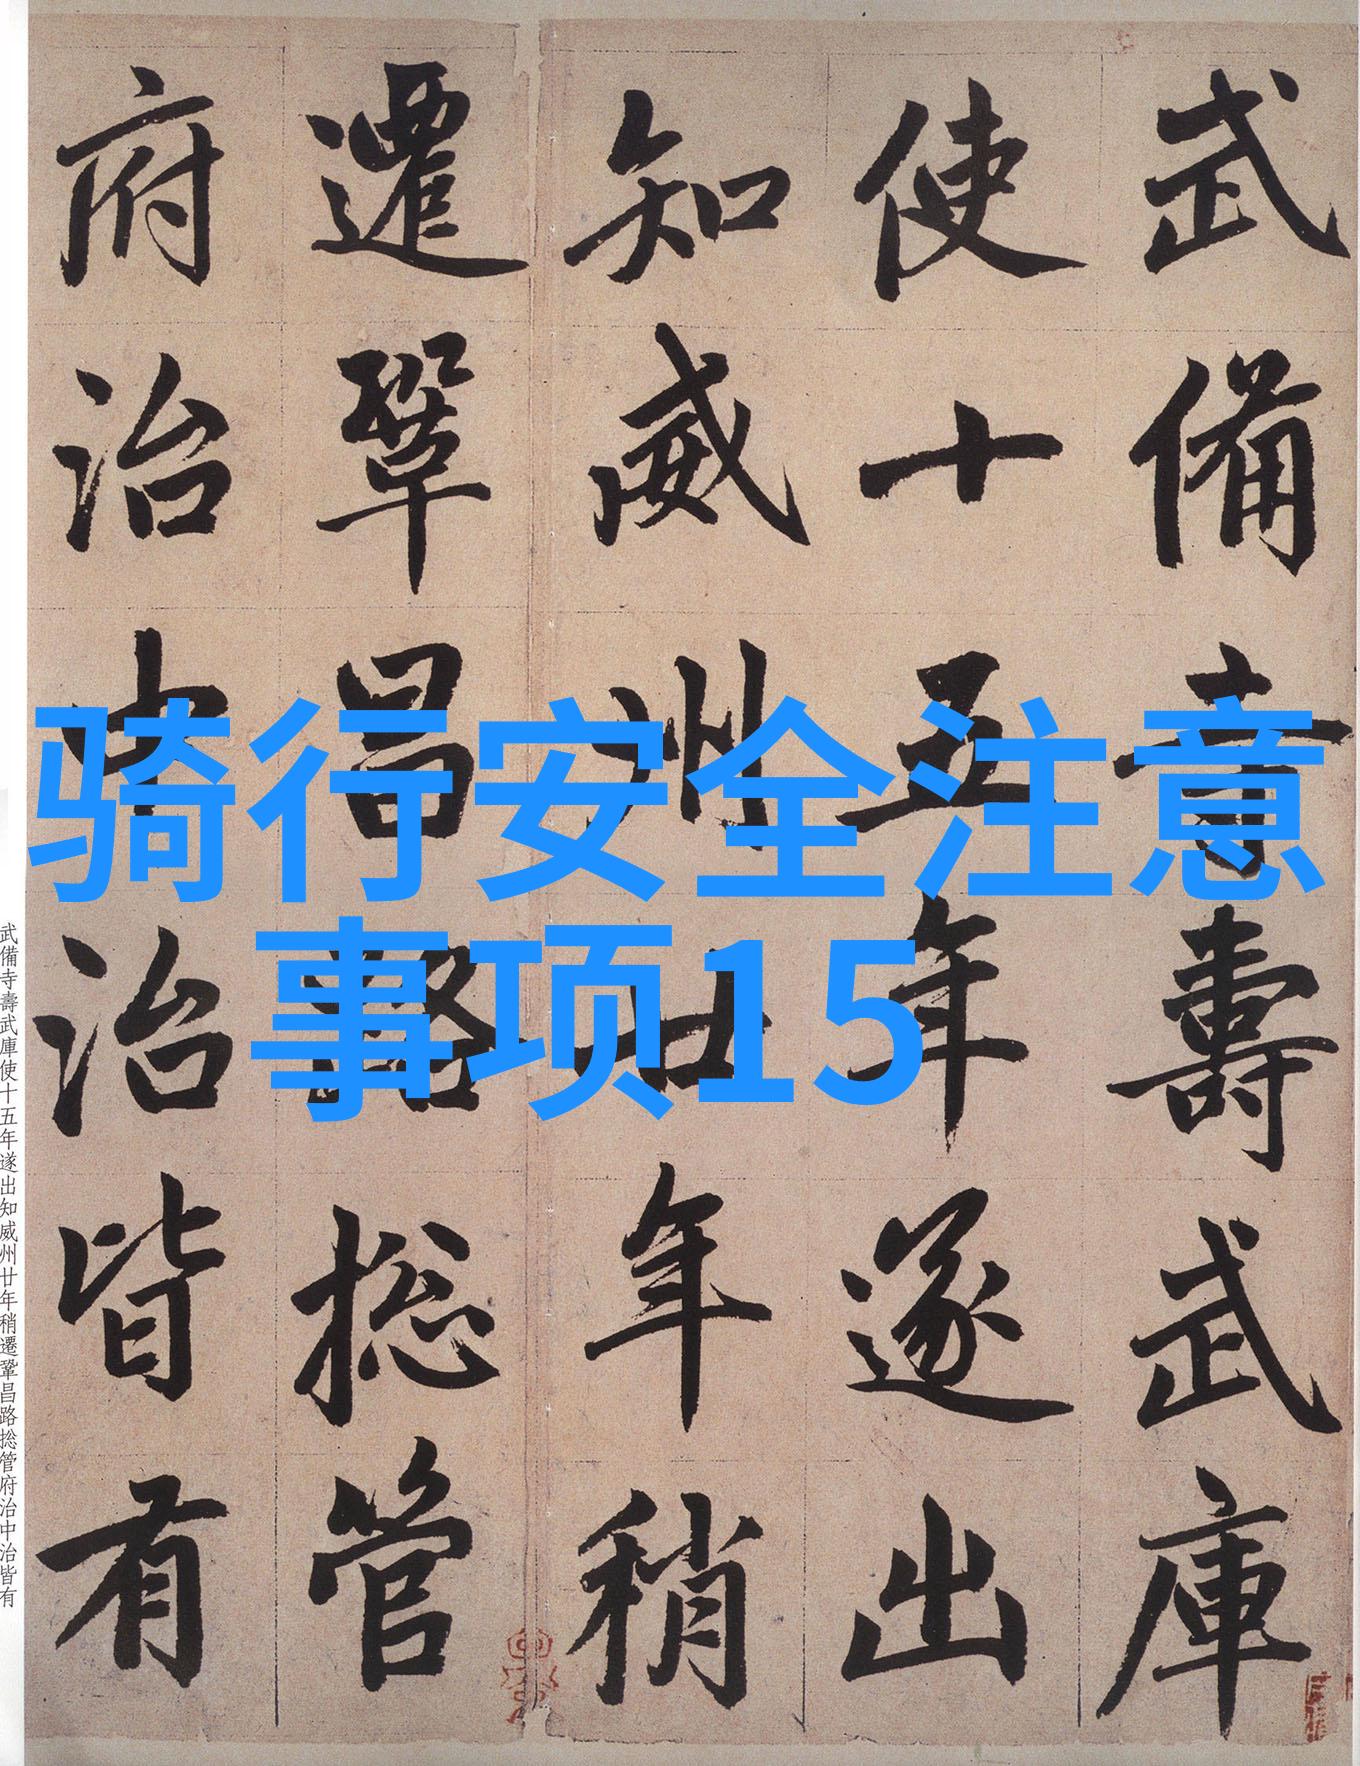 武備寺壽武庫
使十五年遂出
知威州廿年稍
遷鞏昌路捴管
府治中治皆有
骑行安全注意
事项15
武備寺壽武庫使十五年遂出知威州廿年稍遷鞏昌路捴管府治中治皆有